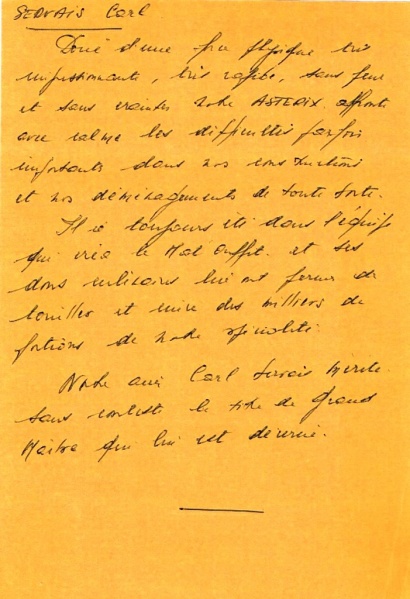 SERVAIS Carl
Doué d'une force physique très
impressionnante, très rapide, sans peur
et sans craintes notre ASTERIX affronte
avec calme les difficultés parfois
importantes dans nos constructions
et nos déménagements de toute sorte.
Il a toujours été dans l'équipe
qui créa le et ses
dons culinaires lui ont permis de
touiller et cuire des milliers de
portions de notre spécialité.
Notre ami Carl Servais mérite
sans conteste le titre de Grand
Maître qui lui est décerné.